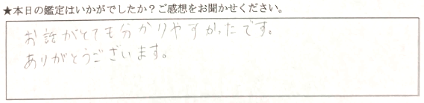 ★本日の鑑定はいかがでしたか？ご感想をお聞かせください。
お話がとても分かりやすかったです。
ありがとうございます。